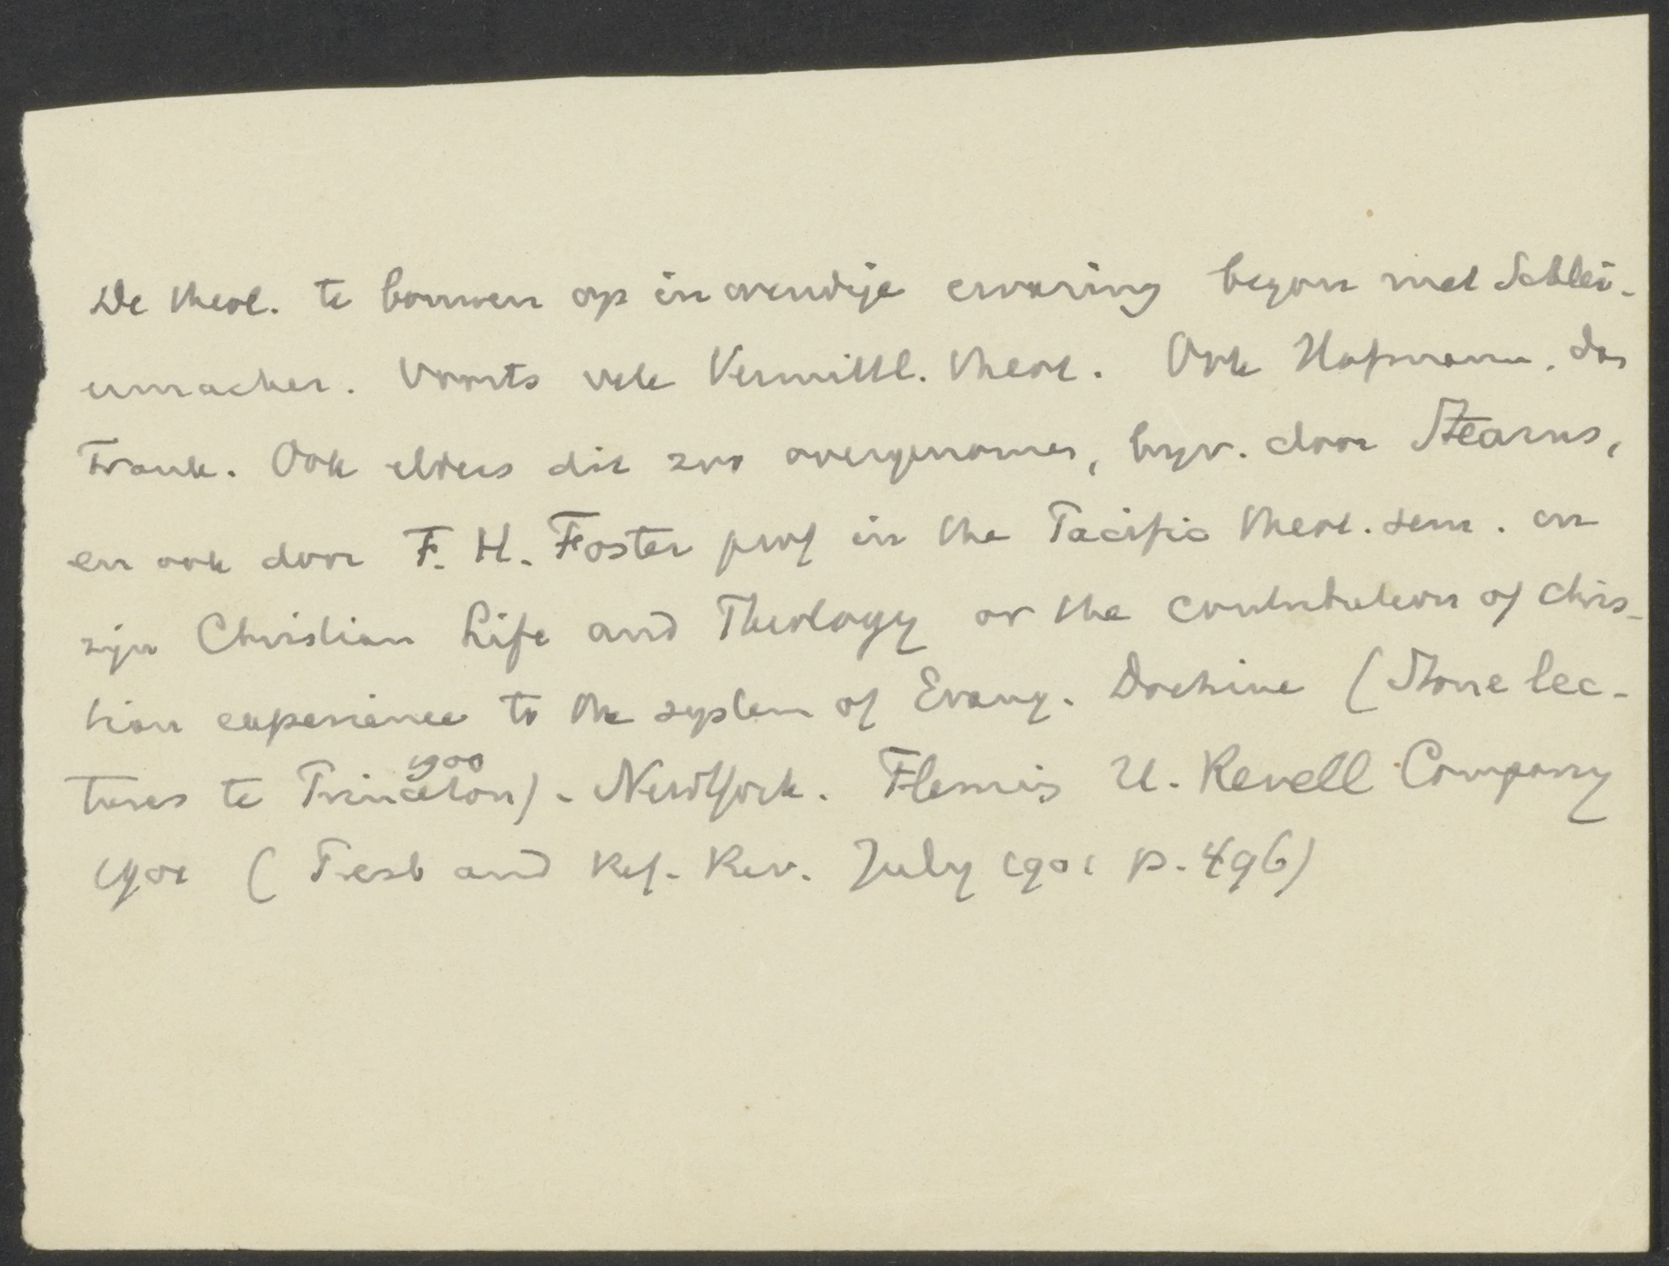 De theol. te bouwen op inwendige ervaring begon met Schlei-
ermacher. Voorts vele Vermittl. theol. Ook Hofmann, dan
Frank. Ook elders dit zoo overgenomen, bijv. door Stearns,
en ook door F. H. Foster prof in the Pacific theol. sem. in
zijn Christian Life and Theology or the contribution of chris-
tian experience to the system of Evang. Doctrine (Stone lec-
tures te Princeton 1900). New York. Fleming H. Revell Company
1901 (Presb and Ref. Rev. July 1901 p. 496)